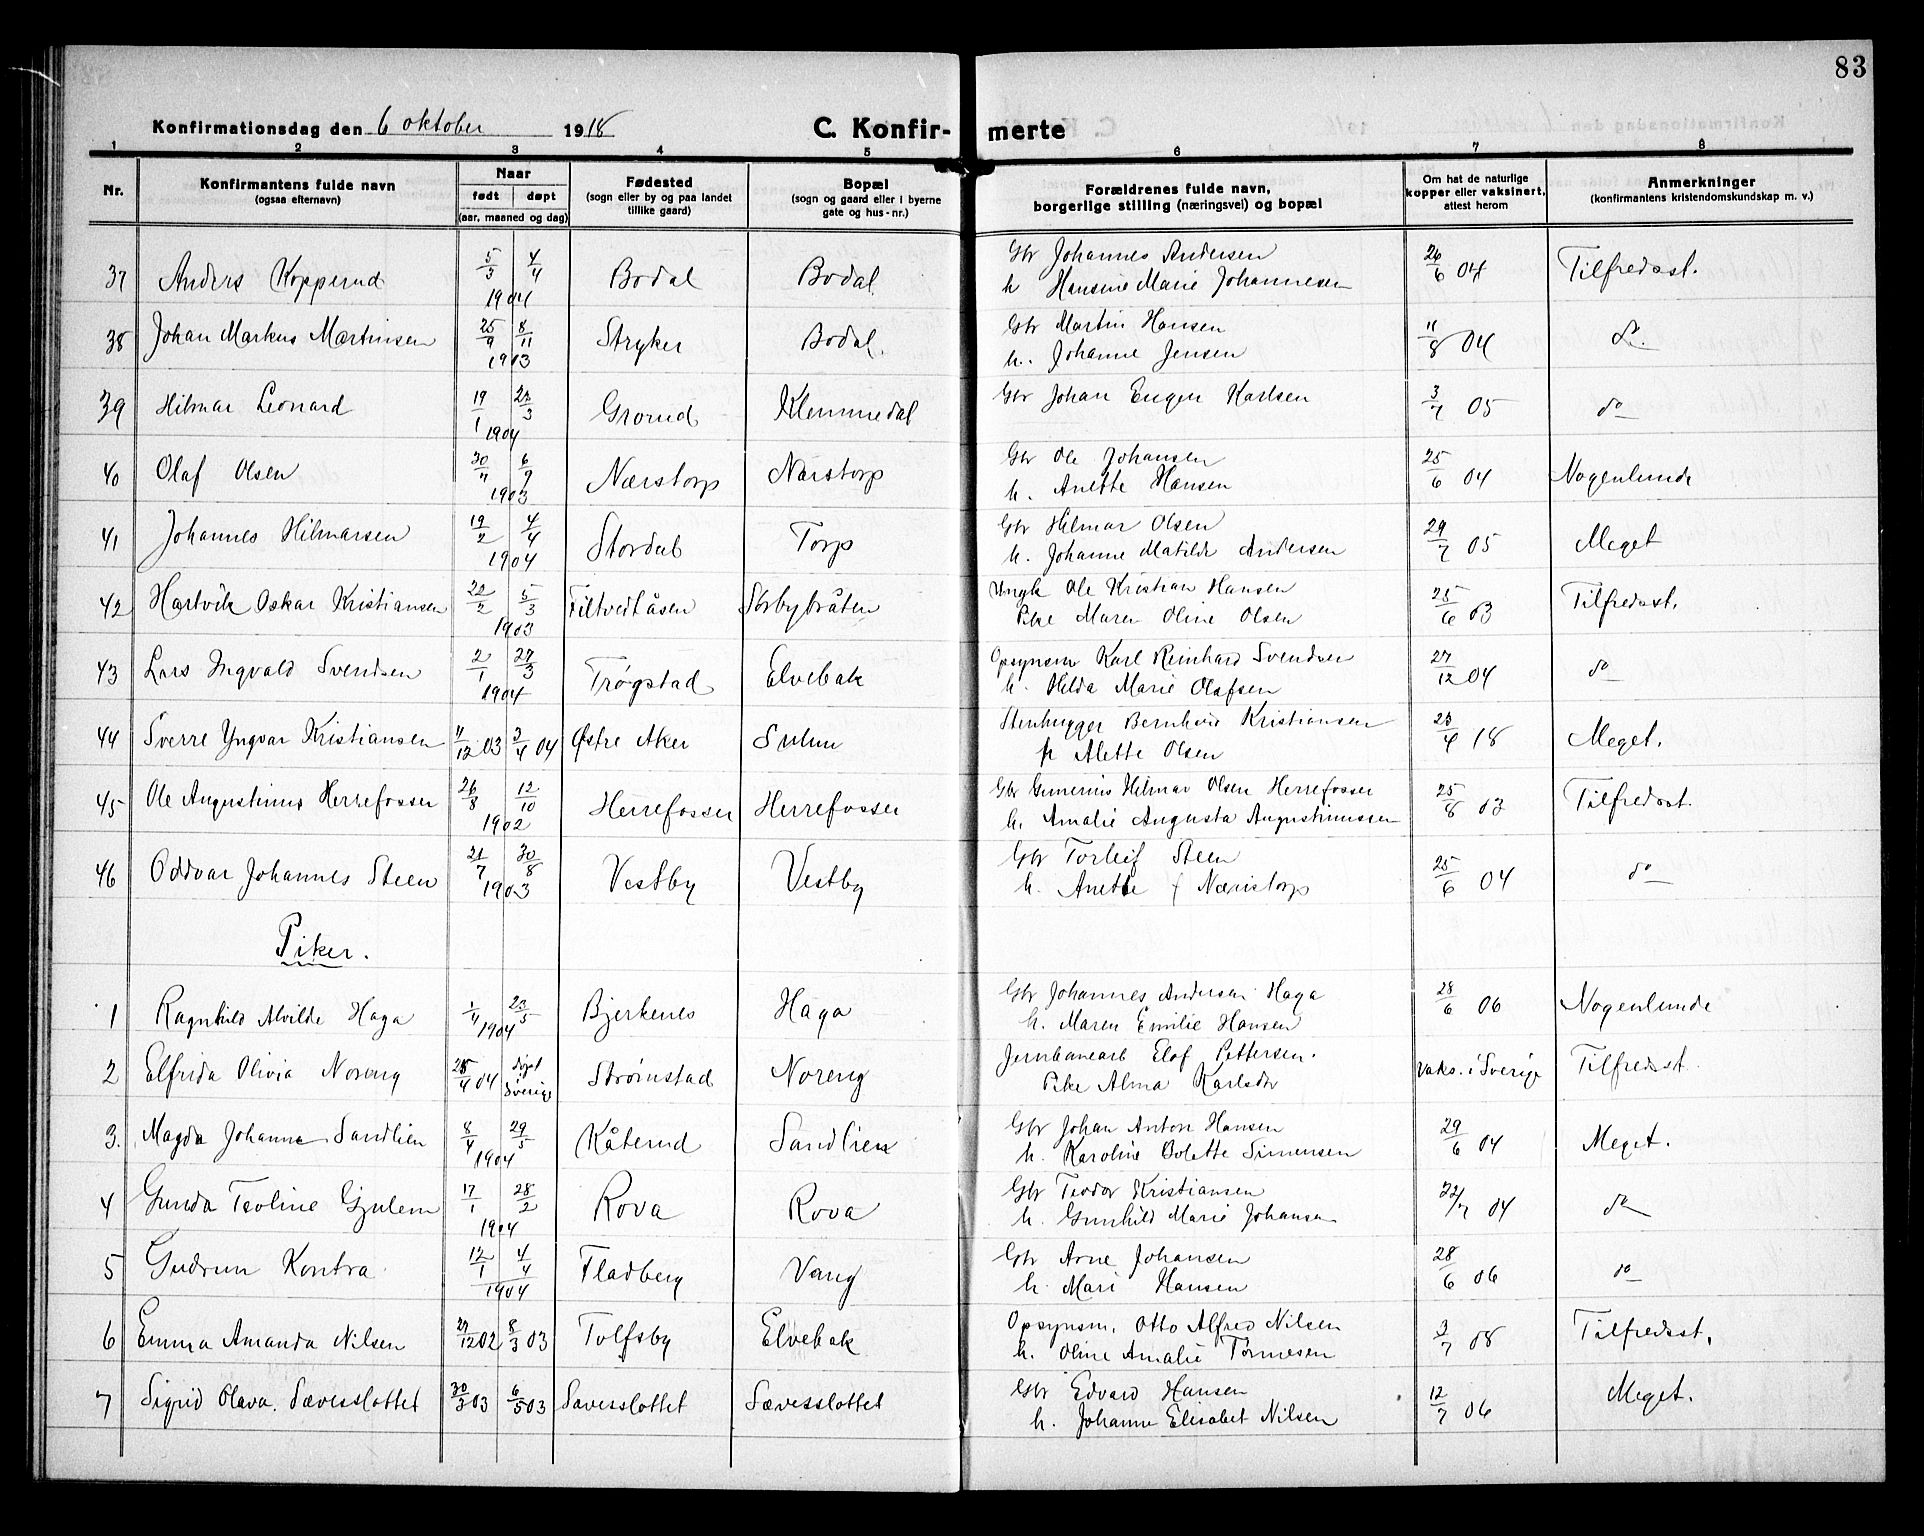 83
Konfirmationsdag den 6 oktober 1918 C. Konfirmerte
1 2 3 4 5 6 7 8
Nr. Konfirmantens fulde navn (ogsaa efternavn) Naar født døpt (aar, maaned og dag) Fødested (sogn eller by og paa landet tillike gaard) Bopæl (sogn og gaard eller i byerne gate og hus-nr.) Forældrenes fulde navn, borgerlige stilling (næringsvei) og bopæl Om hat de naturlige kopper eller vaksinert, attest herom Anmerkninger (konfirmantens kristendomskundskap m. v.)
37 Anders Kopperud 5/3 4/4 1904 Bodal Bodal Gbr Johannes Andersen 26/6 04 Tilfredsst.
h Hansine Marie Johannesen
38 Johan Markus Martinsen 25/9 8/11 1903 Stryker Bodal. Gbr Martin Hansen 11/8 04 do.
h. Johanne Jensen
39 Hilmar Leonard 19/1 22/3 1904 Grorud Klemmedal Gbr Johan Eugen Karlsen 3/7 05 do
40 Olaf Olsen 30/4 6/9 1903 Nærstorp Narstorp Gbr Ole Johansen 25/6 04 Nogenlunde
h. Anette Hansen
41 Johannes Hilmarsen 19/2 4/4 1904 Stordal Torp Gbr Hilmar Olsen 29/7 05 Meget
h. Johanne Matilde Andersen
42 Hartvik Oskar Kristiansen 22/2 5/3 1903 Filtvedtåsen Sørbybråten Ungk Ole Kristian Hansen 25/6 03 Tilfredsst.
Pike Maren Oline Olsen
43 Lars Ingvald Svendsen 2/1 27/3 1904 Trøgstad Elvebak Opsynsm Karl Reinhard Svendsen 27/12 04 do
h. Hilda Marie Olafsen
44 Sverre Yngvar Kristiansen 11/12 03 3/4 04 Østre Aker Sulun Stenhugger Bernhard Kristiansen 23/4 18 Meget.
h Alette Olsen
45 Ole Augustinus Herrefosser 26/8 12/10 1902 Herrefosser Herrefosser Gbr Gunerius Hilmar Olsen Herrefosser 25/8 03 Tilfredsst.
h. Amalie Augusta Augustinussen
46 Oddvar Johannes Steen 21/7 30/8 1903 Vestby Vestby Gbr Torleif Steen 25/6 04 do
h. Anette f Næristorp
Piker.
1 Ragnhild Alvilde Haga 1/4 23/5 1904 Bjerkenes Haga Gbr Johannes Andersen Haga 28/6 06 Nogenlunde
h. Maren Emilie Hansen
2 Elfrida Olivia Noreng 25/4 04 døpt Sverige Strømstad Noreng Jernbanearb Elof Pettersen. vaks. i Sverige Tilfredsst.
Pike Alma Karlsdor
3. Magda Johanne Sandlien 8/4 29/5 1904 Kåterud Sandlien Gbr Johan Anton Hansen 29/6 04 Meget.
h. Karoline Bolette Simensen
4 Gunda Teoline Gjulem 17/1 28/2 1904 Rova Rova Gbr Teodor Kristiansen 22/7 04 do
h. Gunhild Marie Johansen
5 Gudrun Kontra 12/1 4/4 1904 Fladberg Vang Gbr Arne Johansen 28/6 06 do
h. Mari Hansen
6 Emma Amanda Nilsen 29/12 02 8/3 03 Tolfsby Elvebak Opsynsm. Otto Alfred Nilsen 3/7 08 Tilfredsst.
h. Oline Amalie Tørnesen
7 Sigrid Olava. Sævesslottet 30/3 03 6/5 03 Savesslottet Sævesslottet Gbr Edvard Hansen 12/7 06 Meget.
h. Johanne Elisabet Nilsen